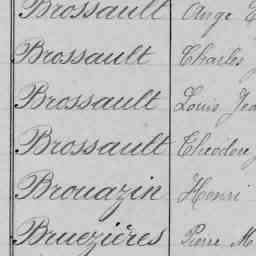 Brossault Ange
Brossault Charles
Brossault Louis
Brossault Théodore
Brouazin Henri
Bruezières Pierre M